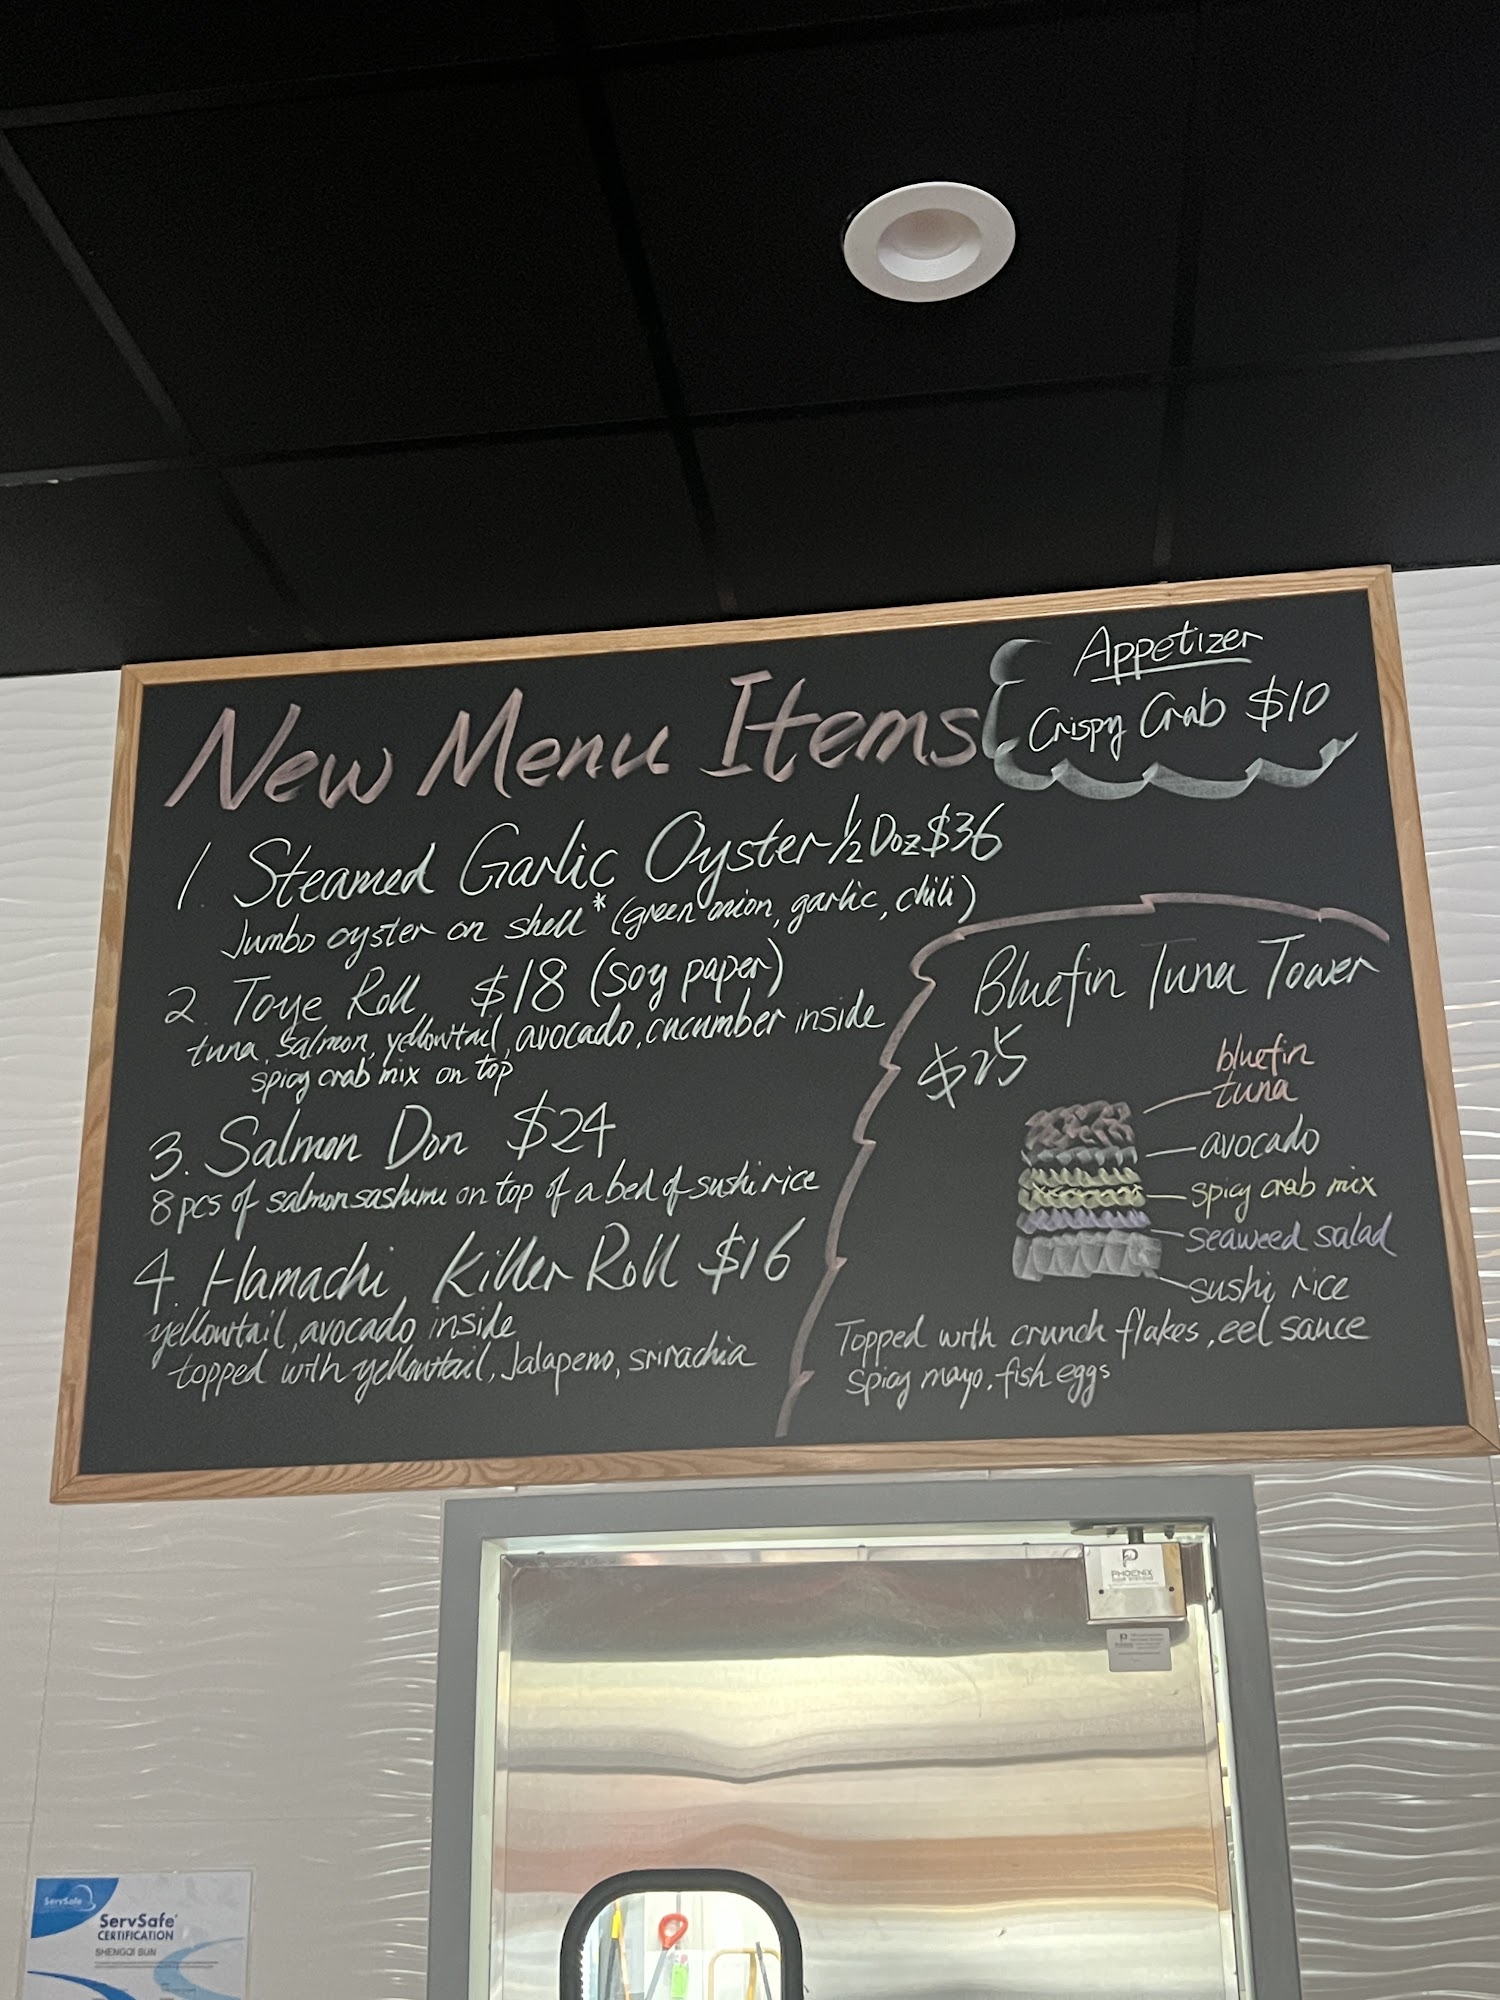 New Menu Items
Appetizer
Crispy Crab $10
1. Steamed Garlic Oyster 1/2 Doz $36
Jumbo oyster on shell * (green onion, garlic, chili)
2. Toye Roll $18 (soy paper)
tuna, salmon, yellowtail, avocado, cucumber inside
spicy crab mix on top
3. Salmon Don $24
8 pcs of salmon sashimi on top of a bed of sushi rice
4. Hamachi Killer Roll $16
yellowtail, avocado inside
topped with yellowtail, Jalapeno, srirachia
Bluefin Tuna Tower
$25
bluefin
tuna
avocado
spicy crab mix
seaweed salad
sushi rice
Topped with crunch flakes, eel sauce
spicy mayo, fish eggs
PHOENIX
ServSafe
ServSafe
CERTIFICATION
SHENGQI SUN